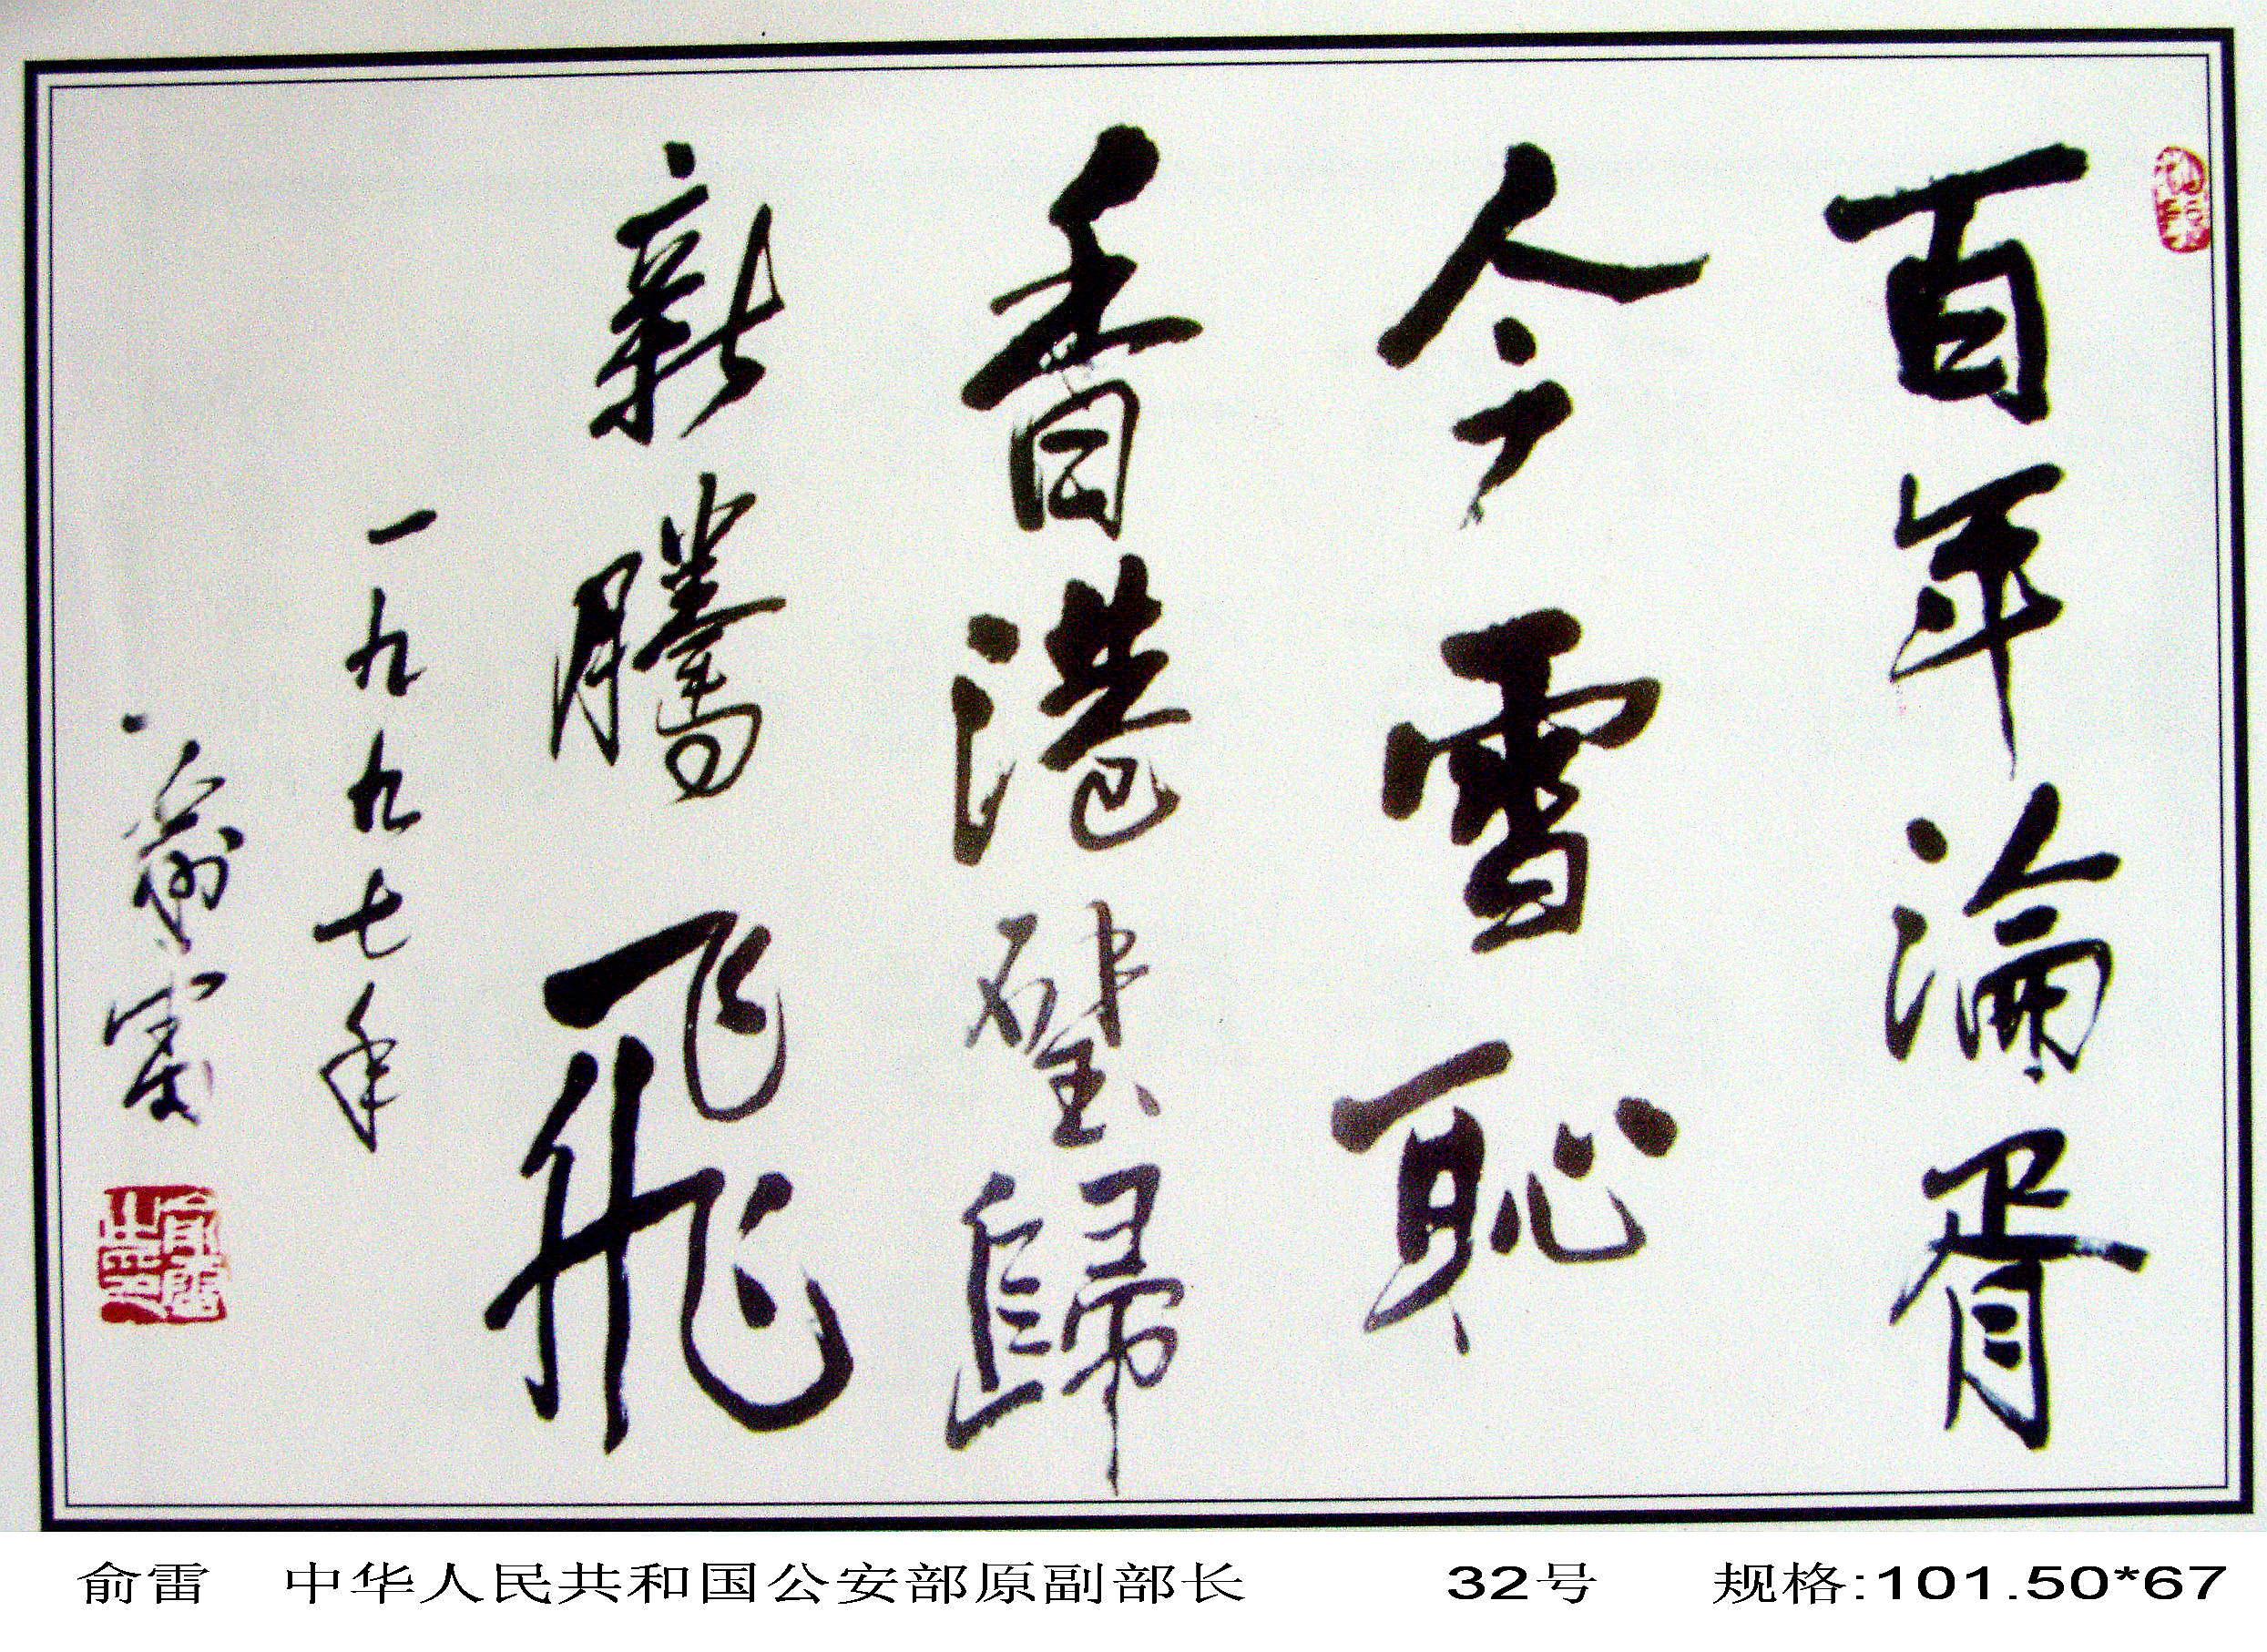 百年淪胥
今雪恥
香港璧歸
新騰飛
一九九七年
俞雷
俞雷 中华人民共和国公安部原副部长 32号 规格:101.50*67